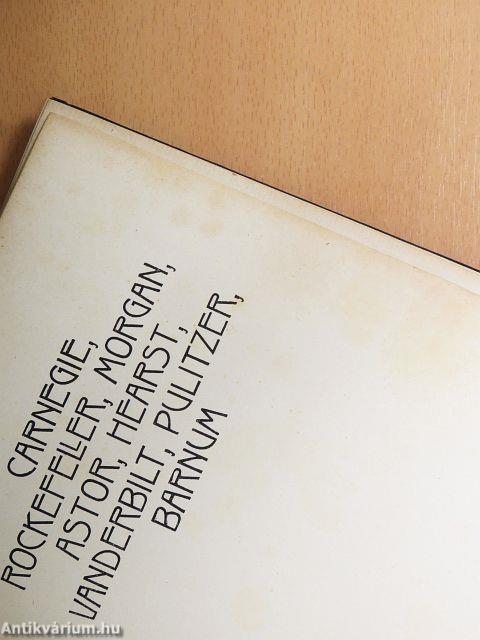 CARNEGIE,
ROCKEFELLER, MORGAN,
ASTOR, HEARST,
VANDERBILT, PULITZER,
BARNUM
Antikvárium.hu